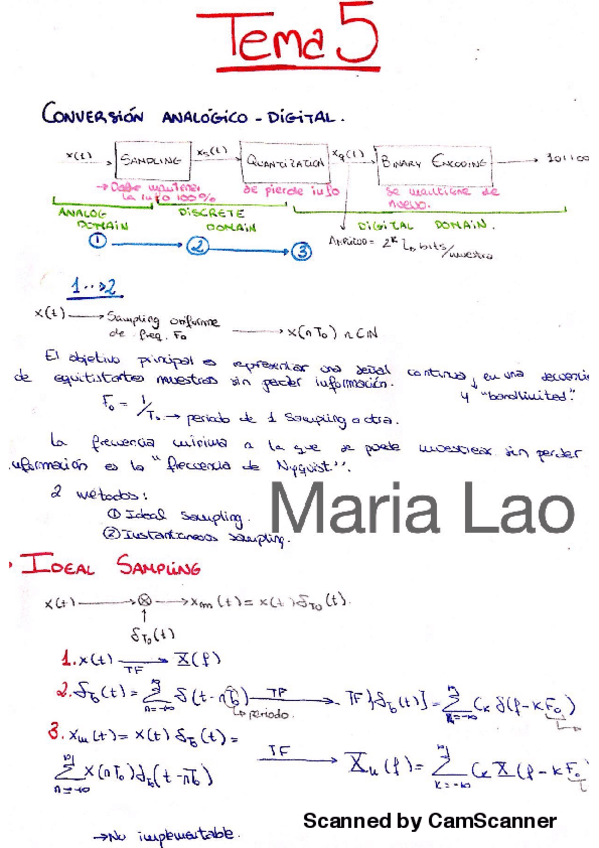 Tema 5
CONVERSIÓN ANALÓGICO - DIGITAL.
x(t) SAMPLING xs(t) QUANTIZATION xq(t) BINARY ENCODING 101100
→ Debe mantener la info 100%
se pierde info
se mantiene de nuevo.
ANALOG DOMAIN
DISCRETE DOMAIN
DIGITAL DOMAIN.
① → ② → ③
= 2^k ↳ bits/muestra
1 --→ 2
x(t) → Sampling uniforme de freq. Fo → x(nTo) n ∈ IN
El objetivo principal es representar una señal continua, en una
y "bandlimited"
de equitistantes muestras sin perder información.
Fo = 1/To → periodo de 1 Sampling a otra.
La frecuencia mínima a la que se puede muestrear sin perder
información es la "frecuencia de Nyquist".
2 métodos:
① Ideal sampling.
② Instantaneous sampling.
Maria Lao
• IDEAL SAMPLING
x(t) → ⊗ → xm(t) = x(t) δTo(t).
↑
δTo(t)
1. x(t) —TF→ X(f)
2. δTo(t) = ∑ n=-∞ ∞ δ(t-nTo) —TF→ TF{δTo(t)} = ∑ k=-∞ ∞ Ck δ(f - kFo)
↳ periodo.
3. xm(t) = x(t) δTo(t) =
∑ n=-∞ ∞ x(nTo) δTo(t-nTo) —TF→ Xm(f) = ∑ k=-∞ ∞ Ck X(f - kFo)
→ No implementable.
Scanned by CamScanner